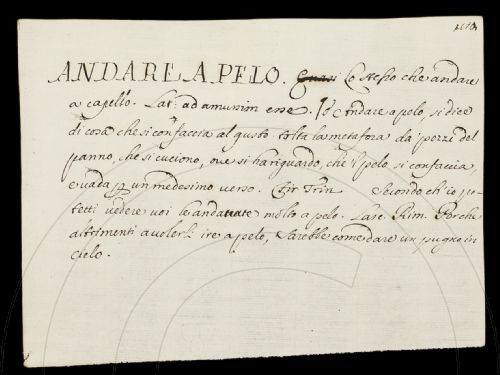 ANDARE A PELO. Quasi Lo stesso che andare
a capello. Lat: ad amussim esse. Andare a pelo, si dice
di cosa che si confaccia al gusto tolta la metafora da' pezzi del
panno, che si cuciono, ove si ha riguardo, che il pelo si confaccia,
e vada p un medesimo verso. Fir Trin Secondo ch'io po-
tetti vedere voi le andavate molto a pelo. Lasc. Rim. Perchè
altrimenti a volerle ire a pelo, Sarebbe come dare un pugno in
cielo.